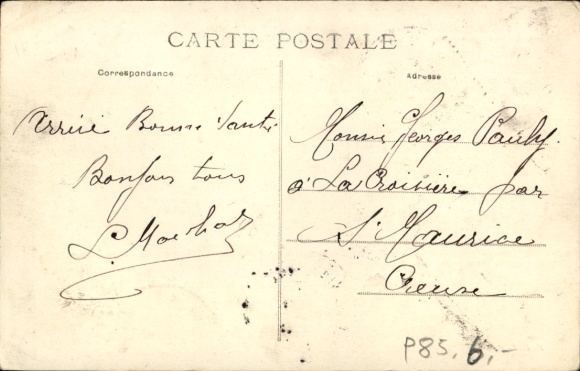 CARTE POSTALE
Correspondance
Adresse
Arrivé Bonne Santé
Bonjour tous
Monsier Georges Pauly.
à La Croisière par
St Maurice
Creuse
P85. 6.-